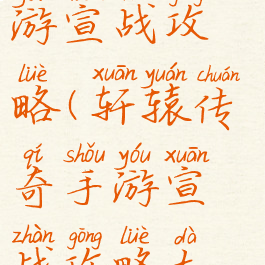 游宣战攻
lüè xuān yuán chuán
略(轩辕传
qí shǒu yóu xuān
奇手游宣
zhàn gōng lüè dà